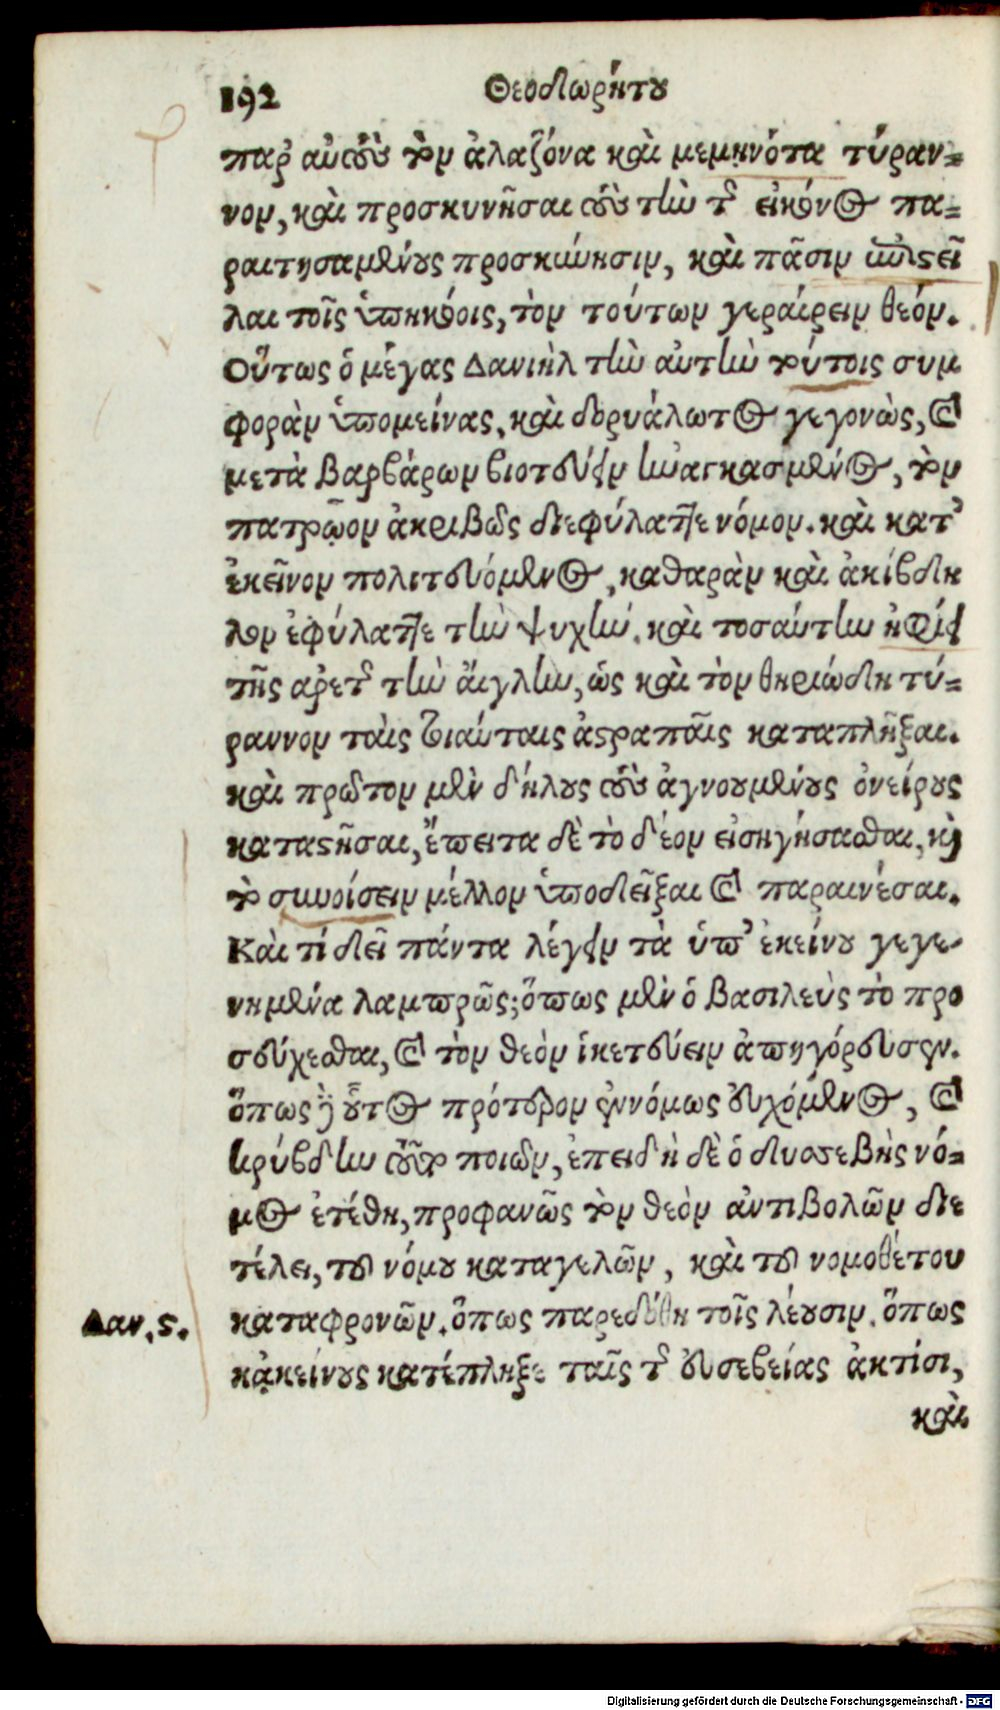 192 Θεοδωρήτου
παρ' αὐτοὺς τὸν ἀλαζόνα καὶ μεμηνότα τύραν=
νον, καὶ προσκυνῆσαι τοὺς τὴν τῆς εἰκόνος πα=
ραιτησαμένους προσκύνησιν, καὶ πᾶσιν ἐπιστεῖ
λαι τοῖς ὑπηκόοις, τὸν τούτων γεραίρειν θεόν.
Οὕτως ὁ μέγας Δανιὴλ τὴν αὐτὴν τούτοις συμ
φορὰν ὑπομείνας, καὶ δορυάλωτος γεγονὼς, καὶ
μετὰ βαρβάρων βιοτεύειν ἠναγκασμένος, τὸν
πατρῷον ἀκριβῶς διεφύλαττε νόμον. καὶ κατ'
ἐκεῖνον πολιτευόμενος, καθαρὰν καὶ ἀκίβδη
λον ἐφύλαττε τὴν ψυχήν. καὶ τοσαύτην ἠφίει
τῆς ἀρετῆς τὴν αἴγλην, ὡς καὶ τὸν θηριώδη τύ=
ραννον ταῖς τοιαύταις ἀστραπαῖς καταπλῆξαι.
καὶ πρῶτον μὲν δήλους τοὺς ἀγνοουμένους ὀνείρους
καταστῆσαι, ἔπειτα δὲ τὸ δέον εἰσηγήσασθαι, καὶ
τὸ συνοίσειν μέλλον ὑποδεῖξαι καὶ παραινέσαι.
Καὶ τί δεῖ πάντα λέγειν τὰ ὑπ' ἐκείνου γεγε-
νημένα λαμπρῶς; ὅπως μὲν ὁ βασιλεὺς τὸ προ
σεύχεσθαι, καὶ τὸν θεὸν ἱκετεύειν ἀπηγόρευσεν.
ὅπως δὲ οὗτος πρότερον ἐννόμως εὐχόμενος, καὶ
κρύβδην τοῦτο ποιῶν, ἐπειδὴ δὲ ὁ δυσσεβὴς νό=
μος ἐτέθη, προφανῶς τὸν θεὸν ἀντιβολῶν διε
τέλει, τοῦ νόμου καταγελῶν, καὶ τοῦ νομοθέτου
Δαν. ς. καταφρονῶν. ὅπως παρεδόθη τοῖς λέουσιν. ὅπως
κἀκείνους κατέπληξε ταῖς τῆς εὐσεβείας ἀκτίσι,
καὶ
Digitalisierung gefördert durch die Deutsche Forschungsgemeinschaft - DFG